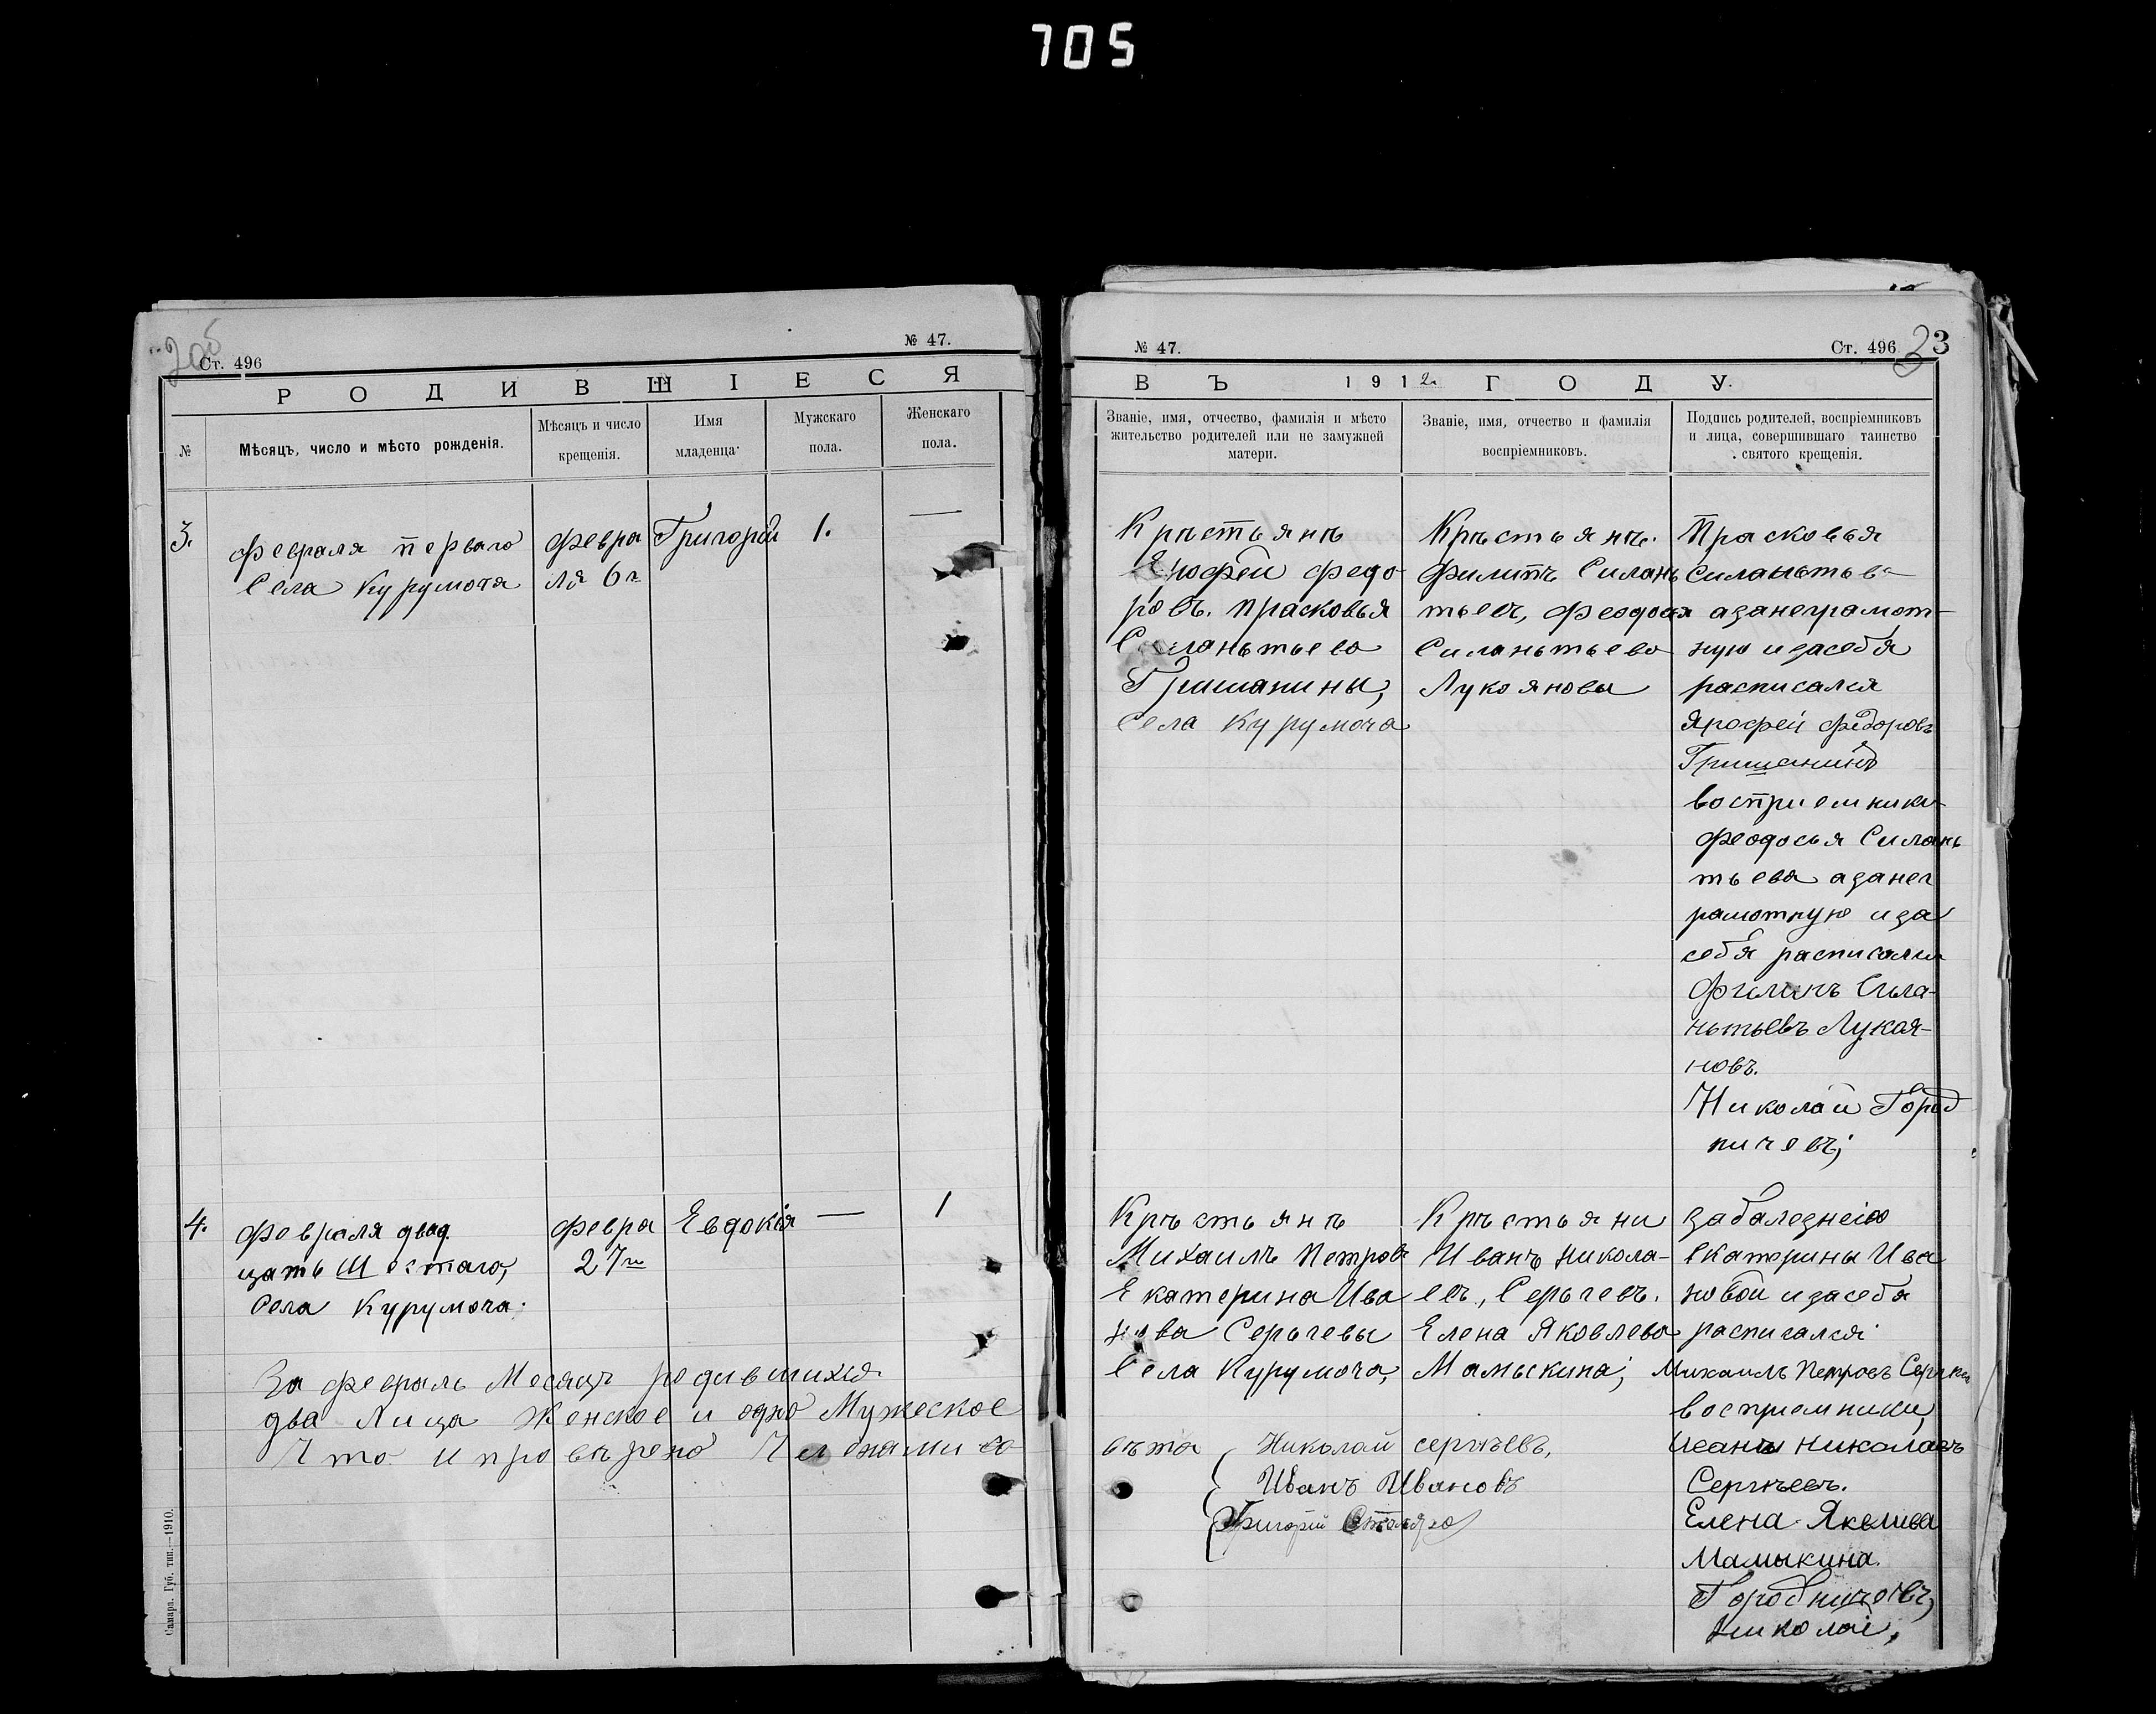 705
20б
Ст. 496
№ 47.
РОДИВШІЕСЯ
№
Мѣсяцъ, число и мѣсто рожденія.
Мѣсяцъ и число
крещенія.
Имя
младенца
Мужскаго
пола.
Женскаго
пола.
3.
Февраля перваго
Села Курумоча
Февра
ля 6го
Григорій
1.
—
4.
Февраля двад
цать шестаго,
Села Курумоча.
Февра
27го
Евдокія
—
1
За февраль Месяцъ родившихся
два Лица Женское и одно Мужеское
Что и провѣрено Членами со
Самара. Губ. тип.—1910.
№ 47.
Ст. 496
3
ВЪ 1912 ГОДУ.
Званіе, имя, отчество, фамилія и мѣсто
жительство родителей или не замужней
матери.
Званіе, имя, отчество и фамилія
воспріемниковъ.
Подпись родителей, воспріемниковъ
и лица, совершившаго таинство
святого крещенія.
Крѣстьянѣ
Ярофей Федо-
ровъ. Прасковья
Силаньтьева
Гришанины,
Села Курумоча
Крѣстьянѣ.
Филипъ Силань
тьевъ, Феодосья
Силаньтьева
Лукоянова
Прасковья
Силаньтьева
азанеграмот-
ную изасебя
расписался
Ярофей Фёдоровъ
Гришанинъ
восприемники
Феодосья Силань
тьева азанег
рамотную иза
себя расписался
Филипъ Сила-
ньтьевъ Лукая-
новъ.
Николай Город
ничевъ;
Крѣстьянѣ
Михаилъ Петровъ
Екатерина Ива
нова Серьгевы
Села Курумоча,
Крѣстьяни
Иванъ Никола-
евъ, Серьгевъ.
Елена Яковлева
Мамыкина;
забалезнею
Екатерины Ива
новой изасебя
расписался
Михаилъ Петровъ
восприемники,
Иванъ Николаевъ
Сергѣевъ.
Елена Яквлива
Мамыкина.
Городничевъ,
Николаі,
вѣта
Николай сергѣевъ,
Иванъ Ивановъ
Григорий